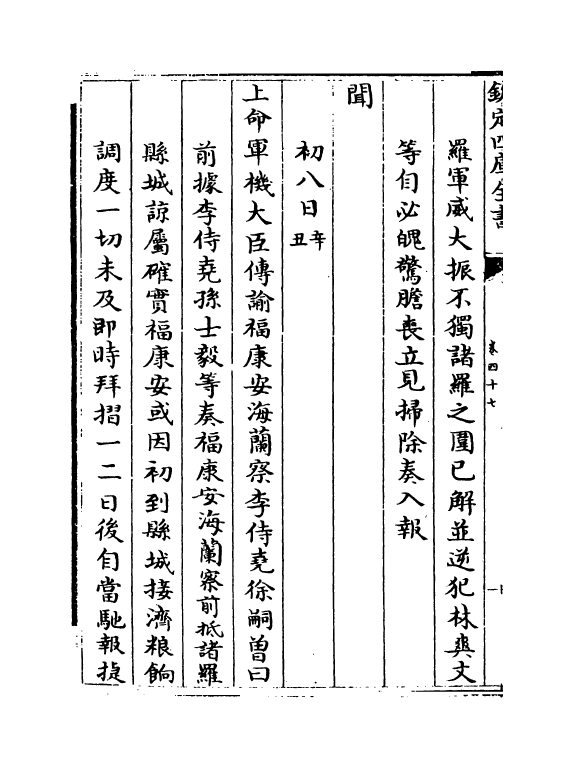 欽定四庫全書
卷四十七
羅軍威大振不獨諸羅之圍已解並逆犯林爽文
等自必魄驚膽喪立見掃除奏入報
聞
初八日辛丑
上命軍機大臣傳諭福康安海蘭察李侍堯徐嗣曾曰
前據李侍堯孫士毅等奏福康安海蘭察前抵諸羅
縣城諒屬確實福康安或因初到縣城接濟粮餉
調度一切未及即時拜摺一二日後自當馳報捷